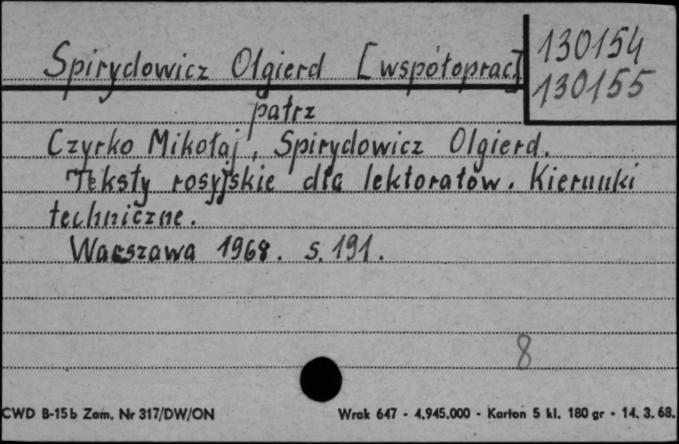 Spirydowicz Olgierd [współoprac]
130154
130155
patrz
Czyrko Mikołaj, Spirydowicz Olgierd.
Teksty rosyjskie dla lektoratów. Kierunki
techniczne.
Warszawa 1968. s. 191.
8
CWD B-15b Zam. Nr 317/DW/ON Wrak 647 - 4.945.000 - Karton 5 kl. 180 gr - 14. 3. 68.